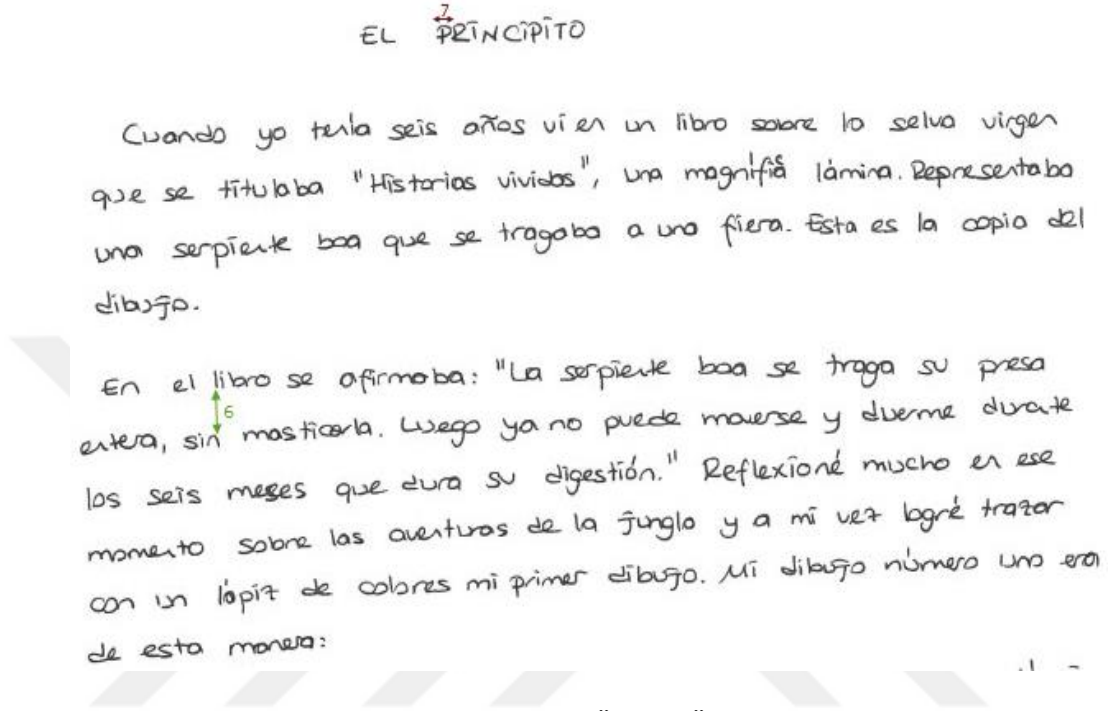 7
EL PRINCIPITO
Cuando yo tenía seis años vi en un libro sobre la selva virgen
que se titulaba "Historias vividas", una magnífica lámina. Representaba
una serpiente boa que se tragaba a una fiera. Esta es la copia del
dibujo.
En el libro se afirmaba: "La serpiente boa se traga su presa
6
entera, sin masticarla. Luego ya no puede moverse y duerme durate
los seis meses que dura su digestión." Reflexioné mucho en ese
momento sobre las aventuras de la jungla y a mi vez logré trazar
con un lápiz de colores mi primer dibujo. Mi dibujo número uno era
de esta manera: